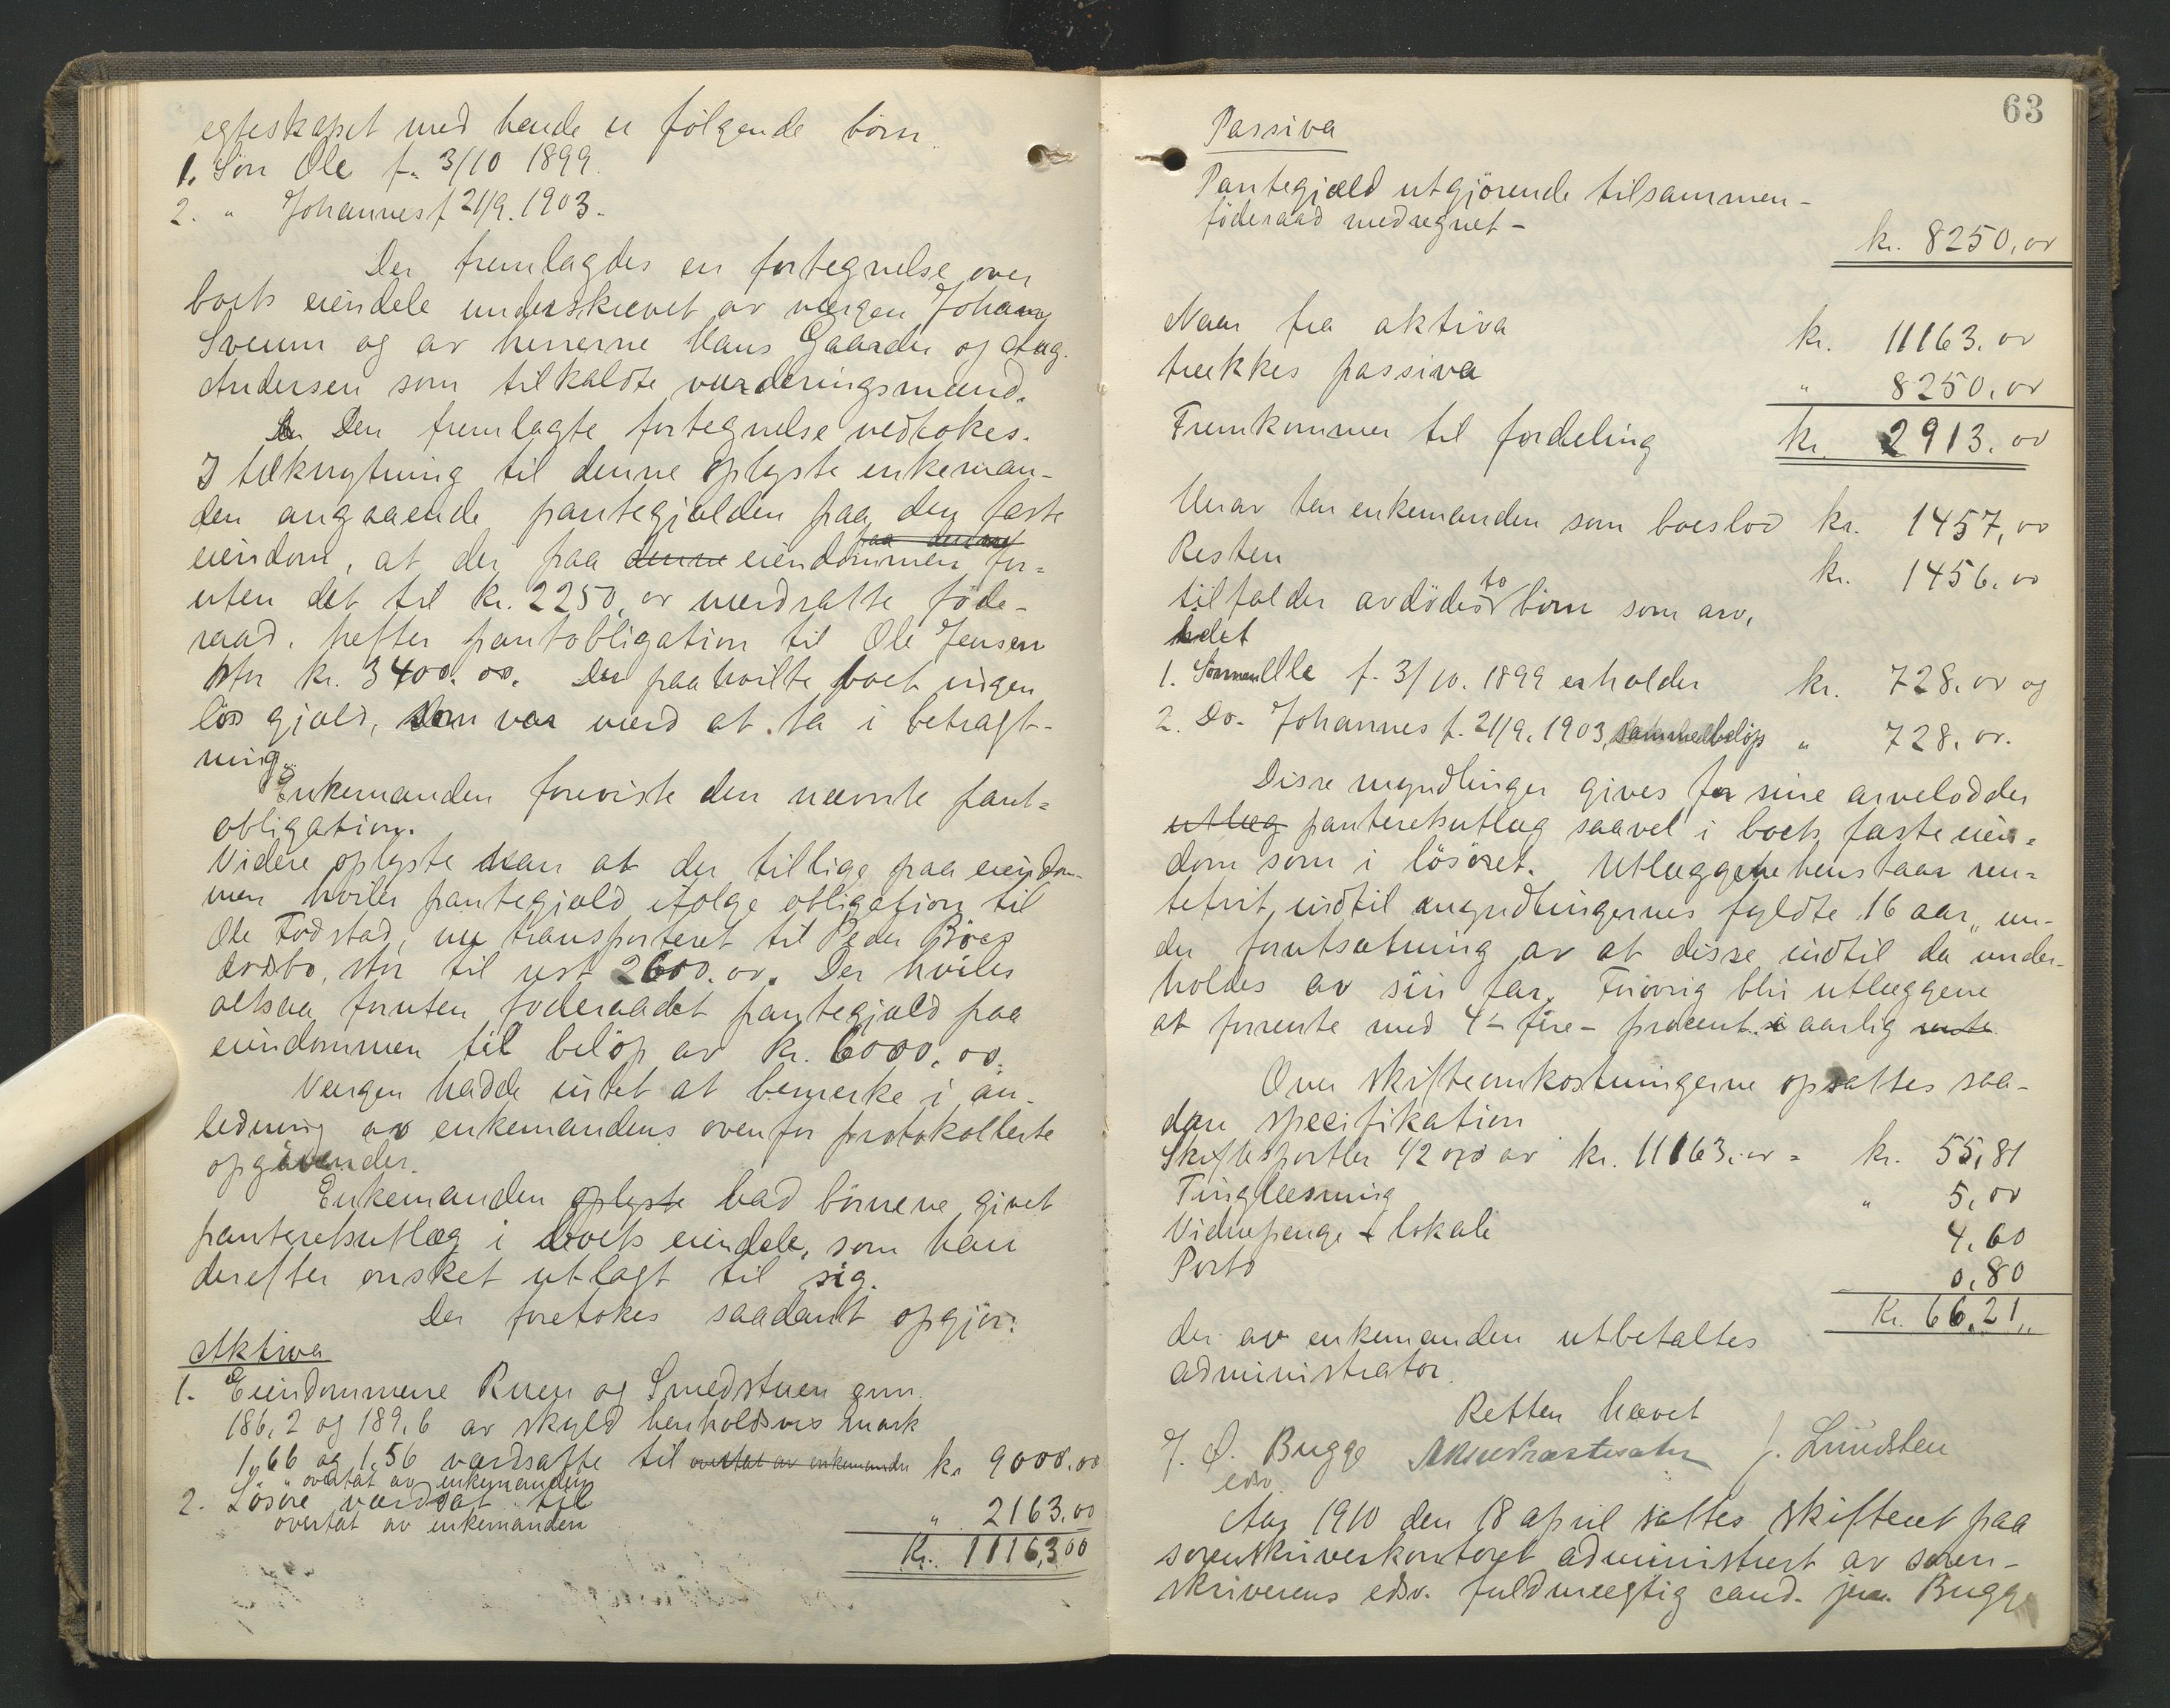 egteskapet med hende er følgende børn.
1. Søn Ole f. 3/10 1899.
2. " Johannes f 21/9. 1903.
Der fremlagdes en fortegnelse over
boets eiendele underskrevet av vergen Johan
Sveum og av herrerne Hans Gaarder og Aug.
Andersen som tilkaldte vurderingsmænd.
Den fremlagte fortegnelse vedtokes.
I tilknytning til denne oplyste enkeman-
den angaaende pantegjælden paa den faste
eiendom, at der paa denne eiendommen for-
uten det til kr. 2250,00 værdsatte føde-
raad, hefter pantobligation til Ole Jensen
stor kr. 3400.00. Der paahvilte boet ingen
løs gjæld, som var værd at ta i betragt-
ning.
Enkemanden foreviste den nævnte pant-
obligation.
Videre oplyste han at der tillige paa eiendom-
men hviler pantegjæld ifølge obligation til
Ole Fodstad, nu transporteret til Peder
stor til rest 2600.00. Der hviler
altsaa foruten foderaadet pantegjæld paa
eiendommen til beløp av kr. 6000.00.
Vergen hadde intet at bemerke i an-
ledning av enkemandens ovenfor protokollerte
opgivender.
Enkemanden oplyste bad børnene givet
panteretsutlæg i boets eiendele, som han
derefter ønsket utlagt til sig.
Der foretokes saadant opgjør:
Aktiva
1. Eiendommene Ruen og Smedstuen gnr.
186,2 og 189,6 av skyld henholdsvis mark
1,66 og 1,56 værdsatte til overtat av enkemanden kr 9000.00
" overtat av enkemanden
2. Løsøre værdsat til
overtat av enkemanden " 2163.00
Kr. 11163,00
63
Passiva
Pantegjæld utgjørende tilsammen -
føderaad medregnet -
kr. 8250,00
Naar fra aktiva kr. 11163.00
trækkes passiva " 8250.00
Fremkommer til fordeling kr. 2913.00
Herav tar enkemanden som boeslod kr. 1457,00
Resten kr. 1456.00
tilfalder avdødes to børn som arv,
idet
1. Sønnen Ole f. 3/10. 1899 erholder kr. 728.00 og
2. Do. Johannes f. 21/9. 1903, samme beløp " 728.00.
Disse myndlinger gives for sine arvelodder
utlæg panteretsutlæg saavel i boets faste eien-
dom som i løsøret. Utlæggene henstaar ren-
tefrit indtil myndlingernes fyldte 16 aar, un-
der forutsætning av at disse indtil da under-
holdes av sin far. Forøvrig blir utlæggene
at forrente med 4 - fire - procent aarlig rente
Over skifteomkostningerne opsattes saa-
dan specifikation
Skiftesportler 1/2 o/o av kr. 11163.00 = kr. 55,81
Tinglæsning " 5,00
Vidnepenge + lokale 4.60
Porto 0,80
Kr. 66.21
der av enkemanden utbetaltes
administrator.
Retten hævet
J. O. Bugge J. Lundsten
edsv.
Aar 1910 den 18 april sattes skifteret paa
sorenskriverkontoret administrert av soren-
skriverens edsv. fuldmægtig cand. jur. Bugge